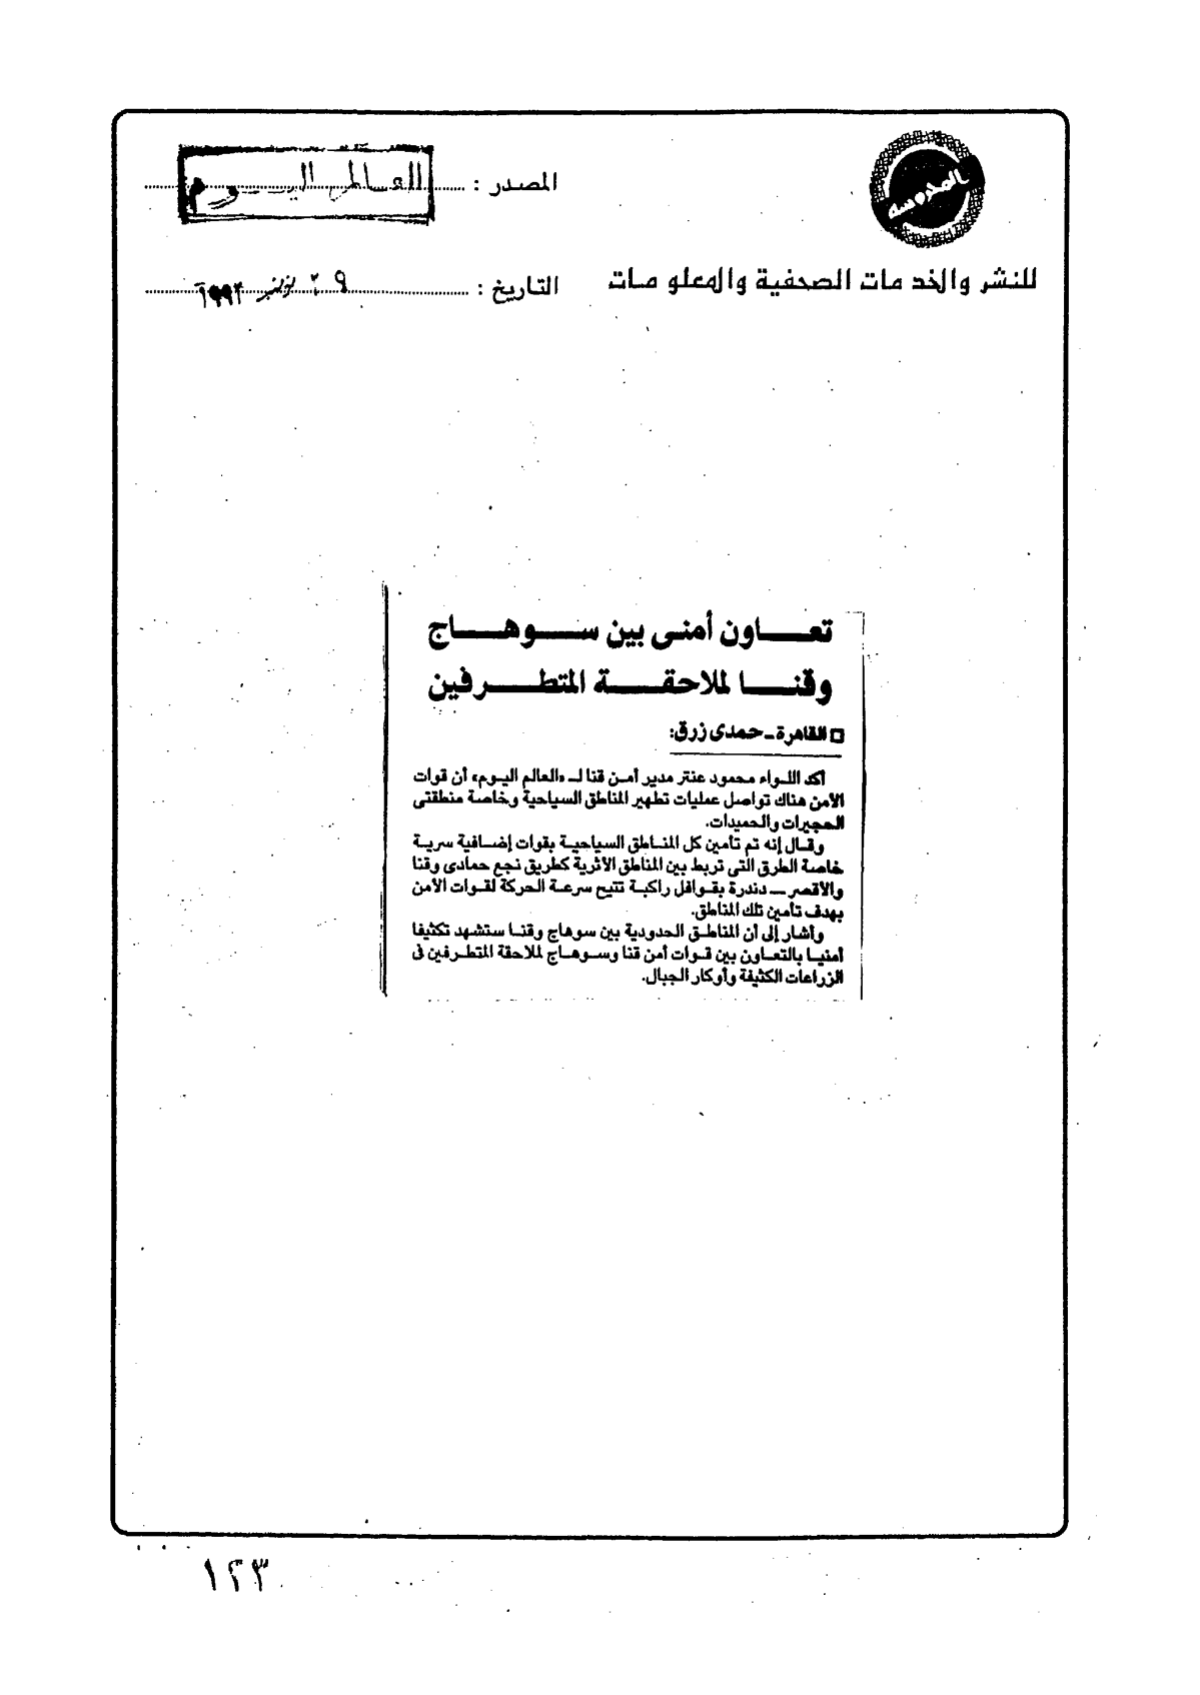 المحروسة
للنشر والخدمات الصحفية والمعلومات
المصدر : العالم اليوم
التاريخ :
تعاون أمنى بين سوهاج
وقنا لملاحقة المتطرفين
القاهرة ـ حمدى زرق:
اكد اللواء محمود عنتر مدير أمن قنا لـ «العالم اليوم» أن قوات
الأمن هناك تواصل عمليات تطهير المناطق السياحية وخاصة منطقتى
الحجيرات والحميدات.
وقال إنه تم تأمين كل المناطق السياحية بقوات إضافية سرية
خاصة الطرق التى تربط بين المناطق الأثرية كطريق نجع حمادى وقنا
والأقصر ـ دندرة بقوافل راكبة تتيح سرعة الحركة لقوات الأمن
بهدف تأمين تلك المناطق.
وأشار إلى أن المناطق الحدودية بين سوهاج وقنا ستشهد تكثيفا
أمنيا بالتعاون بين قوات أمن قنا وسوهاج لملاحقة المتطرفين فى
الزراعات الكثيفة وأوكار الجبال.
١٢٣